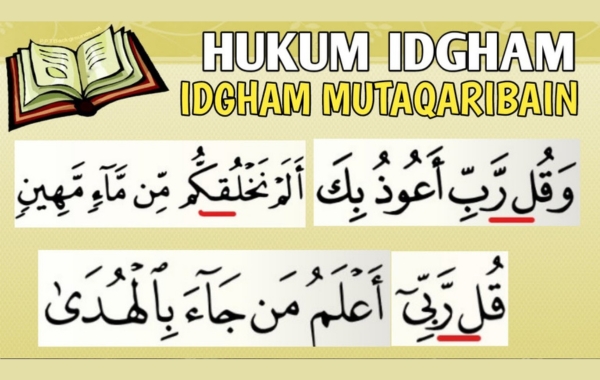 HUKUM IDGHAM
IDGHAM MUTAQARIBAIN
وَقُل رَّبِّ أَعُوذُ بِكَ
أَلَمْ نَخْلُقكُّم مِّن مَّآءٍ مَّهِينٍ
قُل رَّبِّىٓ أَعْلَمُ مَن جَآءَ بِٱلْهُدَىٰ